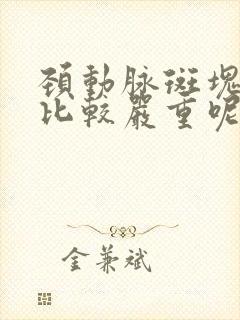 頚動脉斑塊
比較嚴重呢
金兼斌